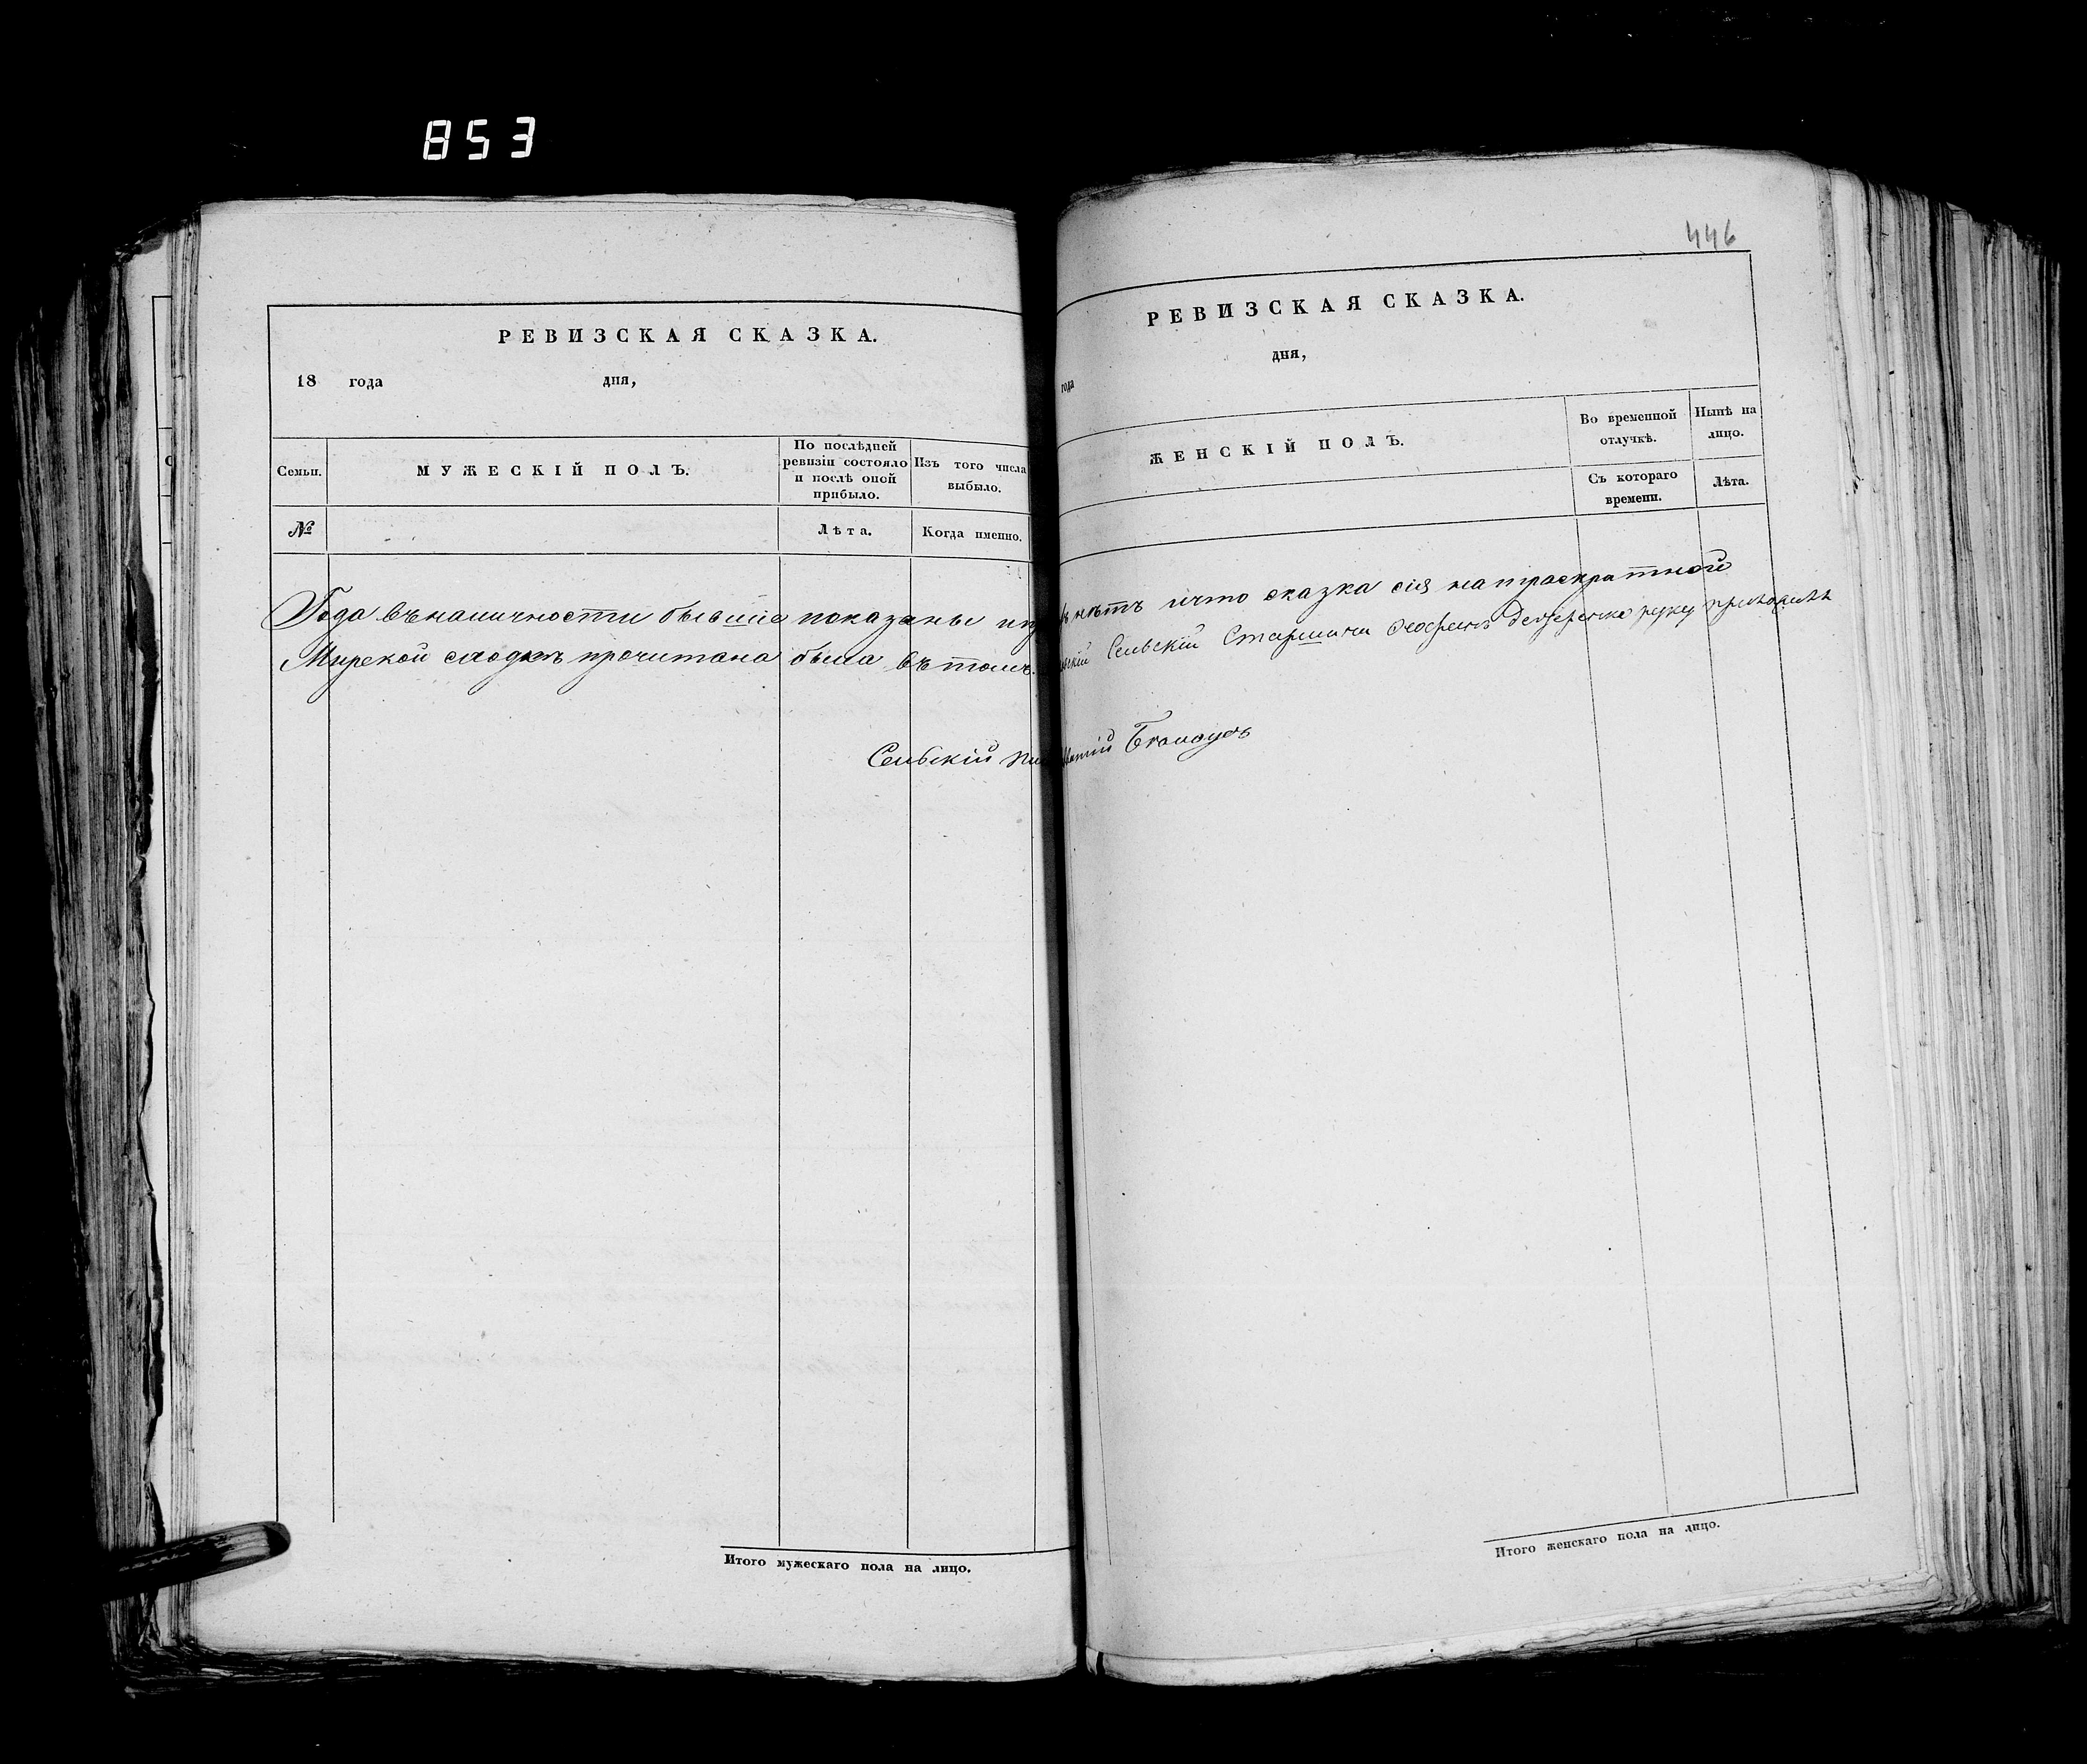 853
446
РЕВИЗСКАЯ СКАЗКА.
18 года дня,
Семьи.
МУЖЕСКІЙ ПОЛЪ.
По послѣдней
ревизіи состояло
и послѣ оной
прибыло.
Изъ того числа
выбыло.
№
Лѣта.
Когда именно.
Года въ наличности бывшіе показаны
Мирской сходкѣ прочитана была въ томъ
Сельскій
Итого мужескаго пола на лицо.
РЕВИЗСКАЯ СКАЗКА.
года дня,
ЖЕНСКІЙ ПОЛЪ.
Во временной
отлучкѣ.
Нынѣ на
лицо.
Съ котораго
времени.
Лѣта.
нѣтъ ичто сказка сія на троекратной
Сельскій Старшина руку приложилъ
Итого женскаго пола на лицо.